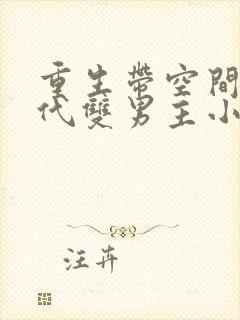 重生帶空間
代雙男主小
汪卉